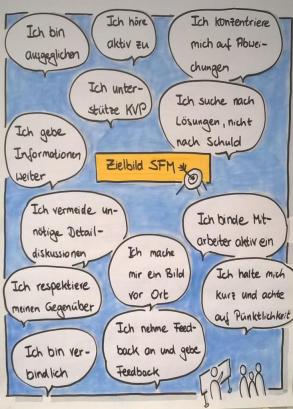 Ich bin
ausgeglichen
Ich höre
aktiv zu
Ich konzentriere
mich auf Abwei-
chungen
Ich unter-
stütze KVP
Ich suche nach
Lösungen, nicht
nach Schuld
Ich gebe
Informationen
weiter
Zielbild SFM
Ich vermeide un-
nötige Detail-
diskussionen
Ich binde Mit-
arbeiter aktiv ein
Ich mache
mir ein Bild
vor Ort
Ich respektiere
meinen Gegenüber
Ich halte mich
kurz und achte
auf Pünktlichkeit
Ich nehme Feed-
back an und gebe
Feedback
Ich bin ver-
bindlich